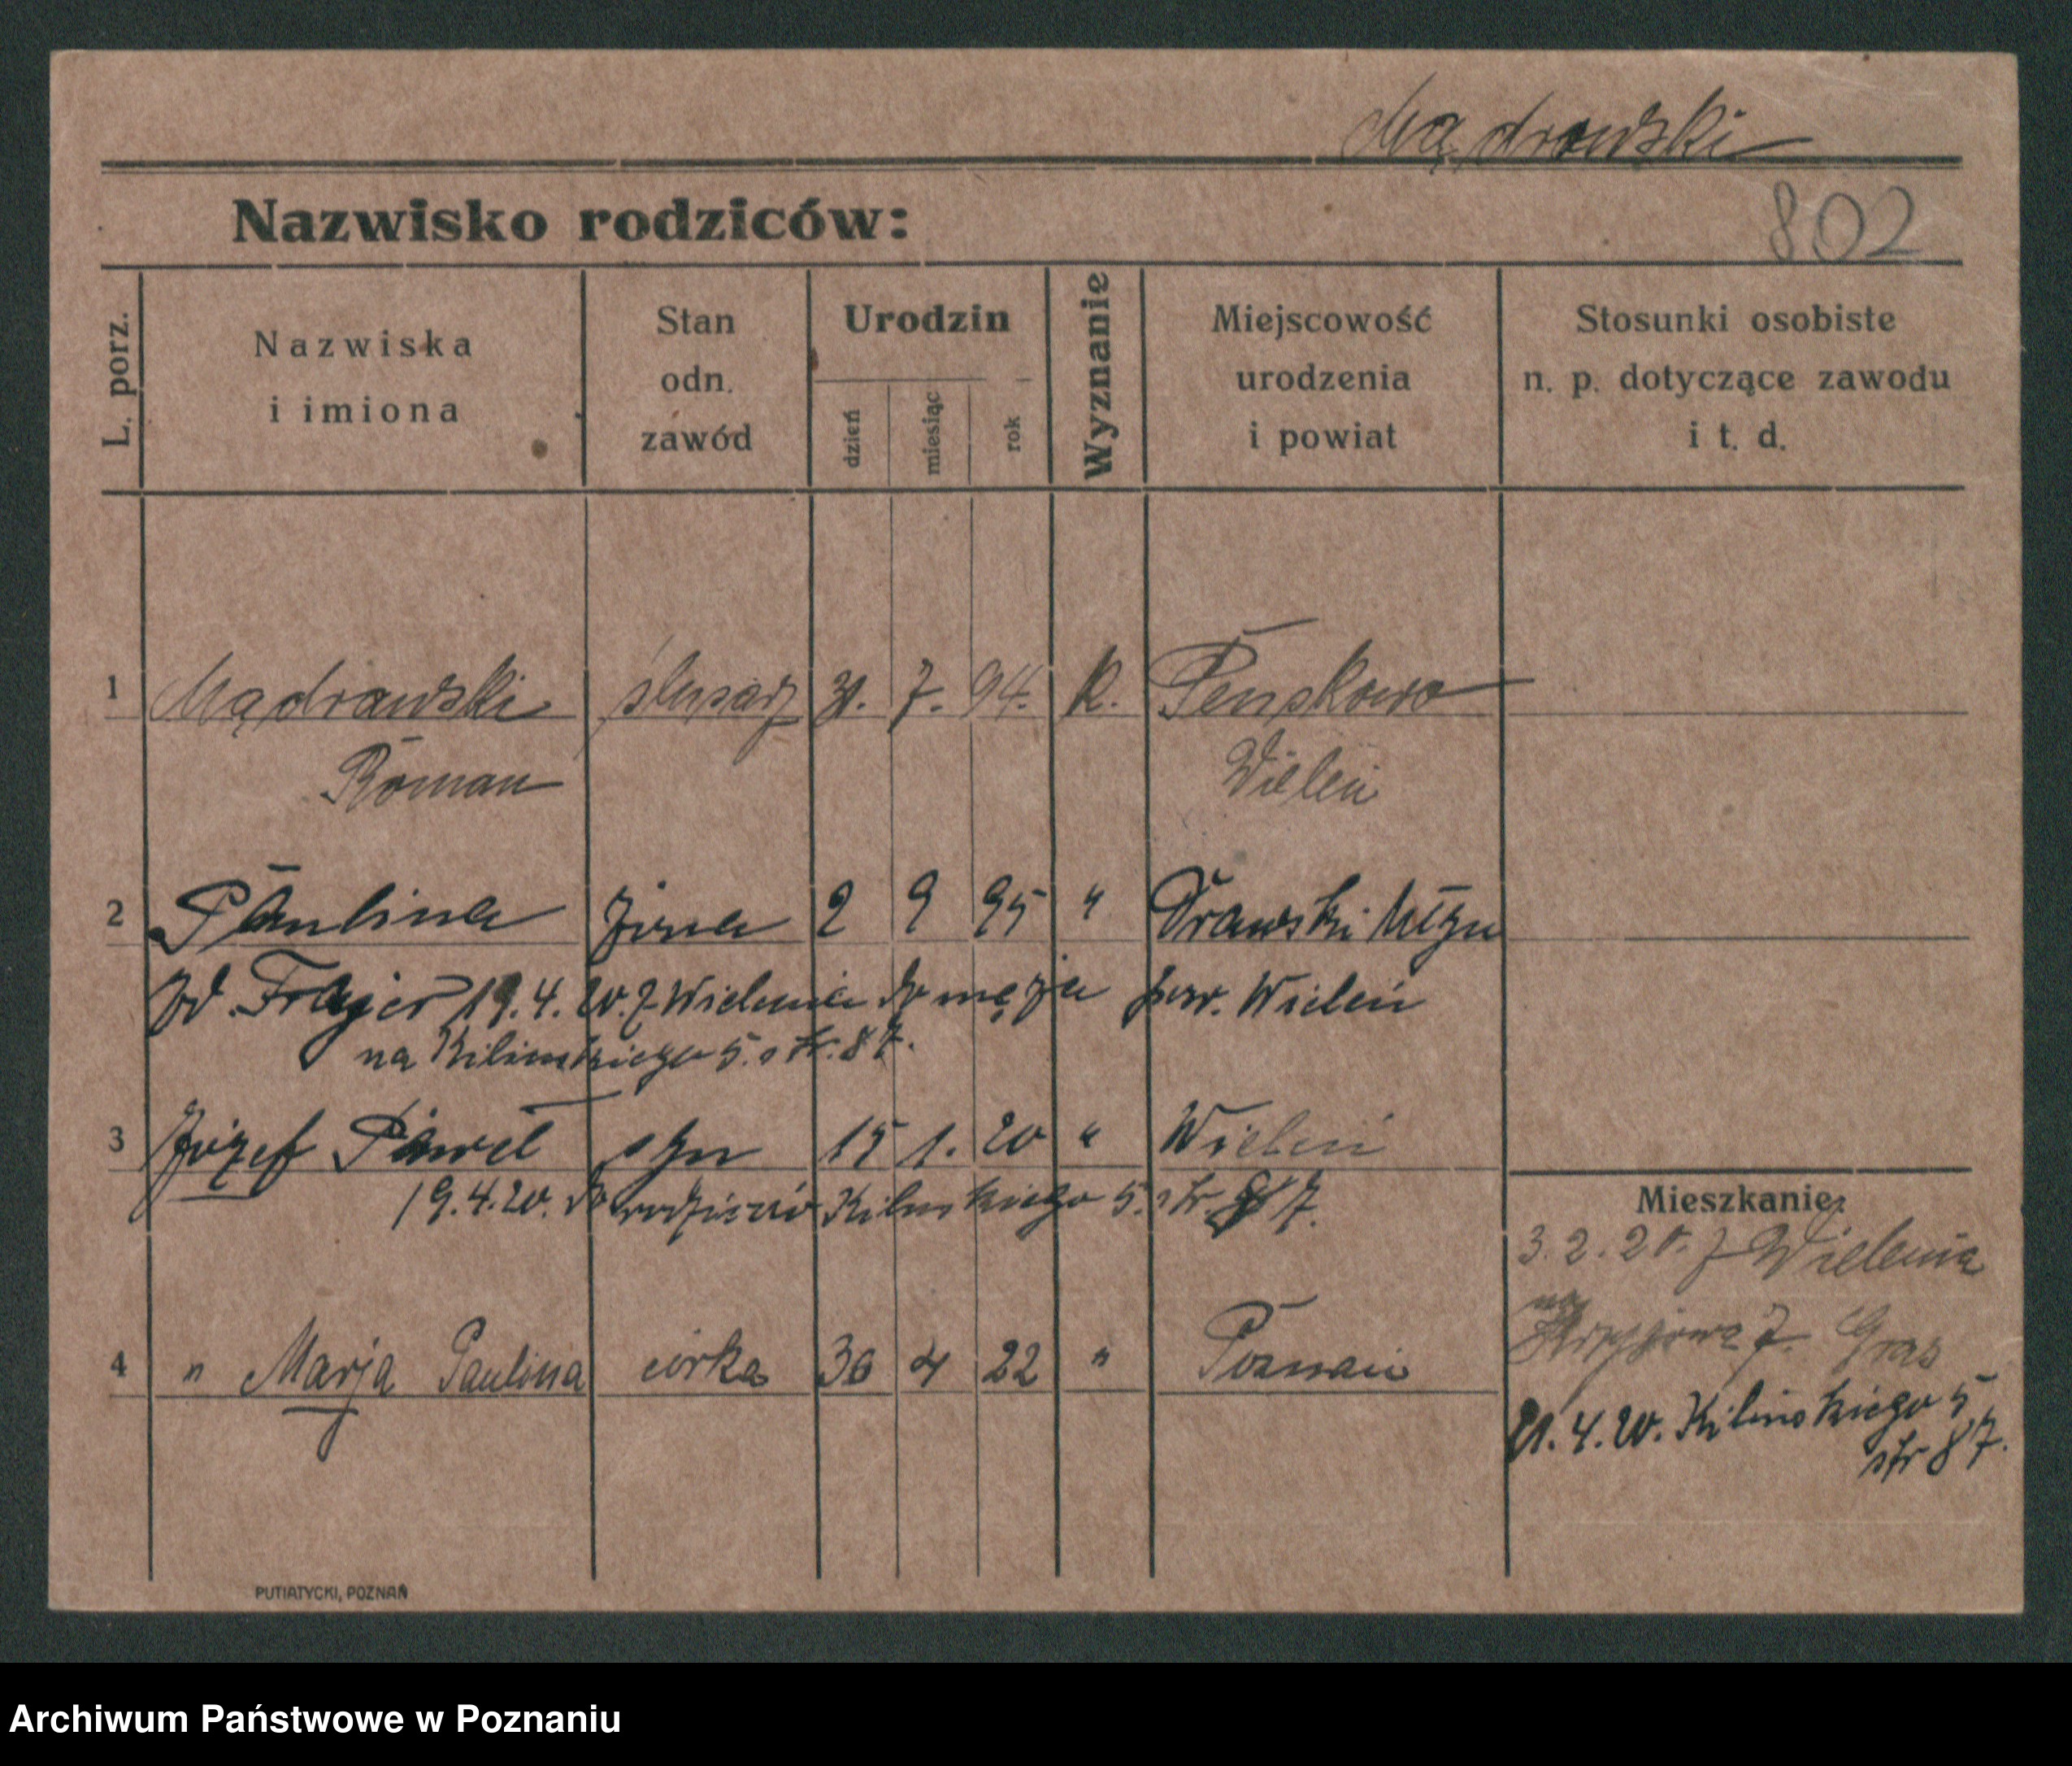 Mądrawski
Nazwisko rodziców:
802
L. porz.
Nazwiska
i imiona
Stan
odn.
zawód
Urodzin
dzień
miesiąc
rok
Wyznanie
Miejscowość
urodzenia
i powiat
Stosunki osobiste
n. p. dotyczące zawodu
i t. d.
1 Mądrawski ślusarz 31. 7. 94. K. Pęnskowo
Roman Wieleń
2 Paulina żona 2 9 95 " Drawski Młyn
Frajer 19.4.20. z Wielenia do męża pow. Wieleń
na Kilinskiego 5. str. 87.
3 Józef Paweł syn 15 1. 20 " Wieleń
19.4.20. do rodziców Kilinskiego 5. str. 87.
Mieszkanie:
3.2.20. z Wielenia
na
7. Gras
4 " Marja Paulina córka 30 4 22 " Poznań
21.4.20. Kilinskiego 5
str 87.
PUTIATYCKI, POZNAŃ
Archiwum Państwowe w Poznaniu